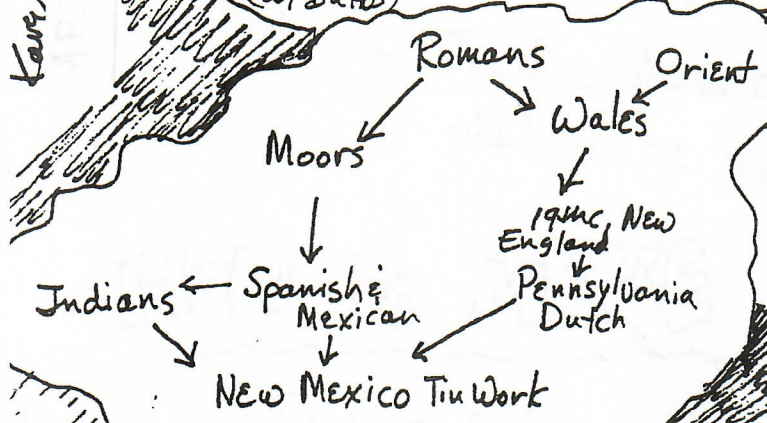 Romans
Orient
Wales
Moors
19thc, New
England
Indians
Spanish &
Mexican
Pennsylvania
Dutch
New Mexico Tin Work